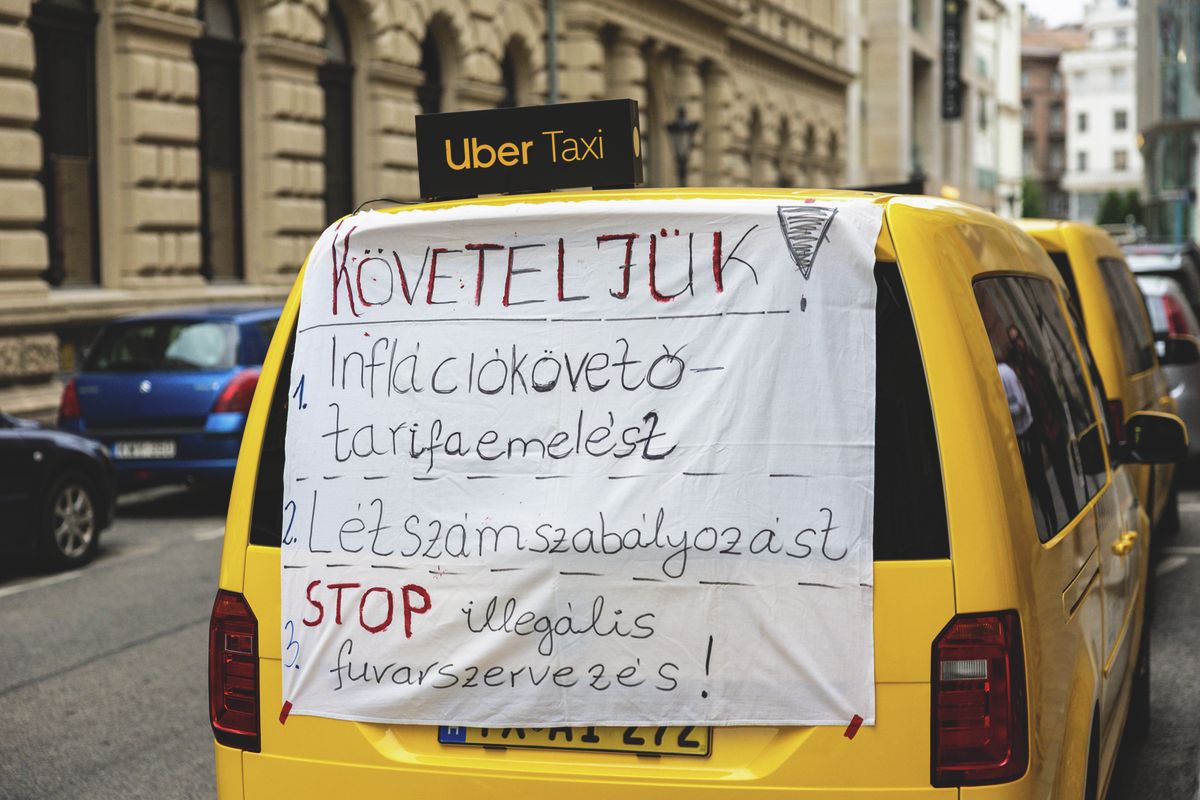 Uber Taxi
KÖVETELJÜK!
1. Inflációkövető-
tarifaemelést
2. Létszámszabályozást
3. STOP illegális
fuvarszervezés!
H